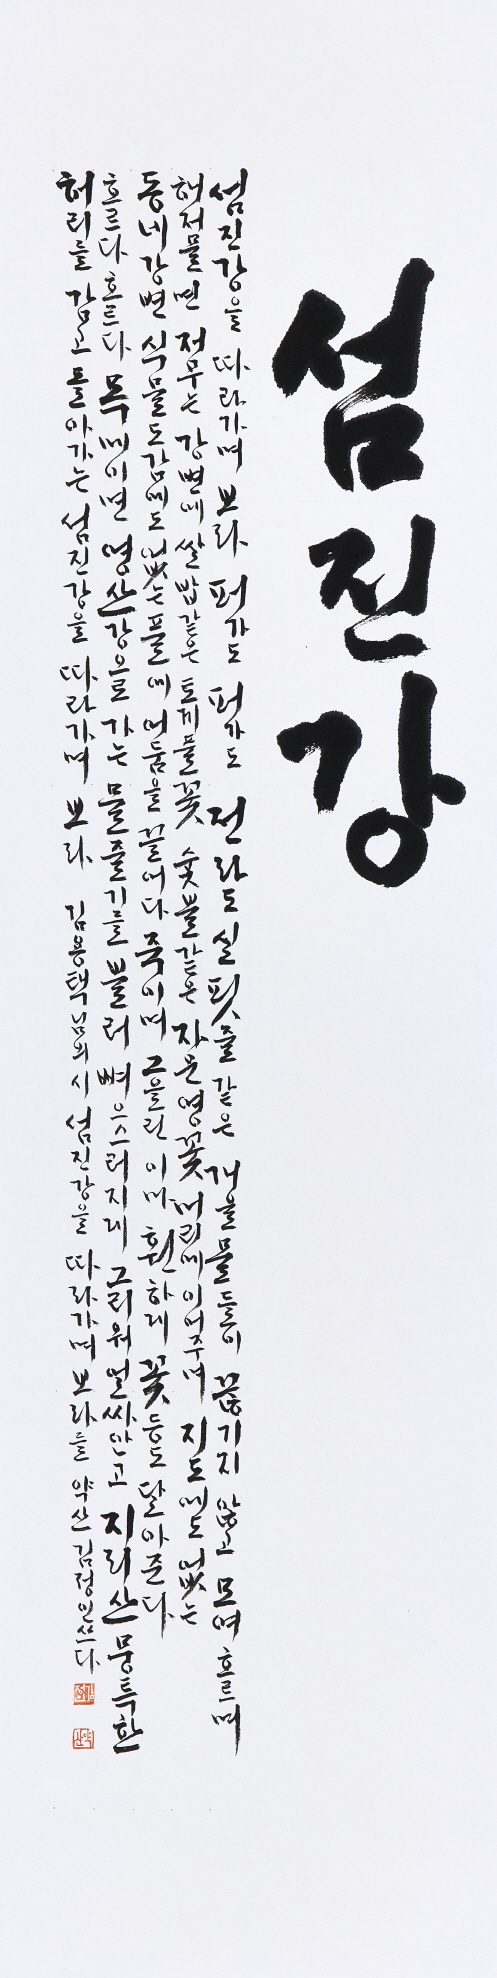 섬진강
섬진강을 따라가며 보라 퍼가도 퍼가도 전라도 실핏줄 같은 개울물들이 끊기지 않고 모여 흐르며
해저물면 저무는 강변에 쌀밥같은 토끼풀꽃 숯불같은 자운영꽃 머리에 이어주며 지도에도 없는
동네강변 식물도감에도 없는 풀에 어둠을 끌어다 죽이며 그을린 이마 훤하게 꽃등도 달아준다
흐르다 흐르다 목메이면 영산강으로 가는 물줄기를 불러 뼈 으스러지게 그리워 얼싸안고 지리산 뭉툭한
허리를 감고 돌아가는 섬진강을 따라가며 보라 김용택님의 시 섬진강을 따라가며 보라를 약산 김정인 쓰다